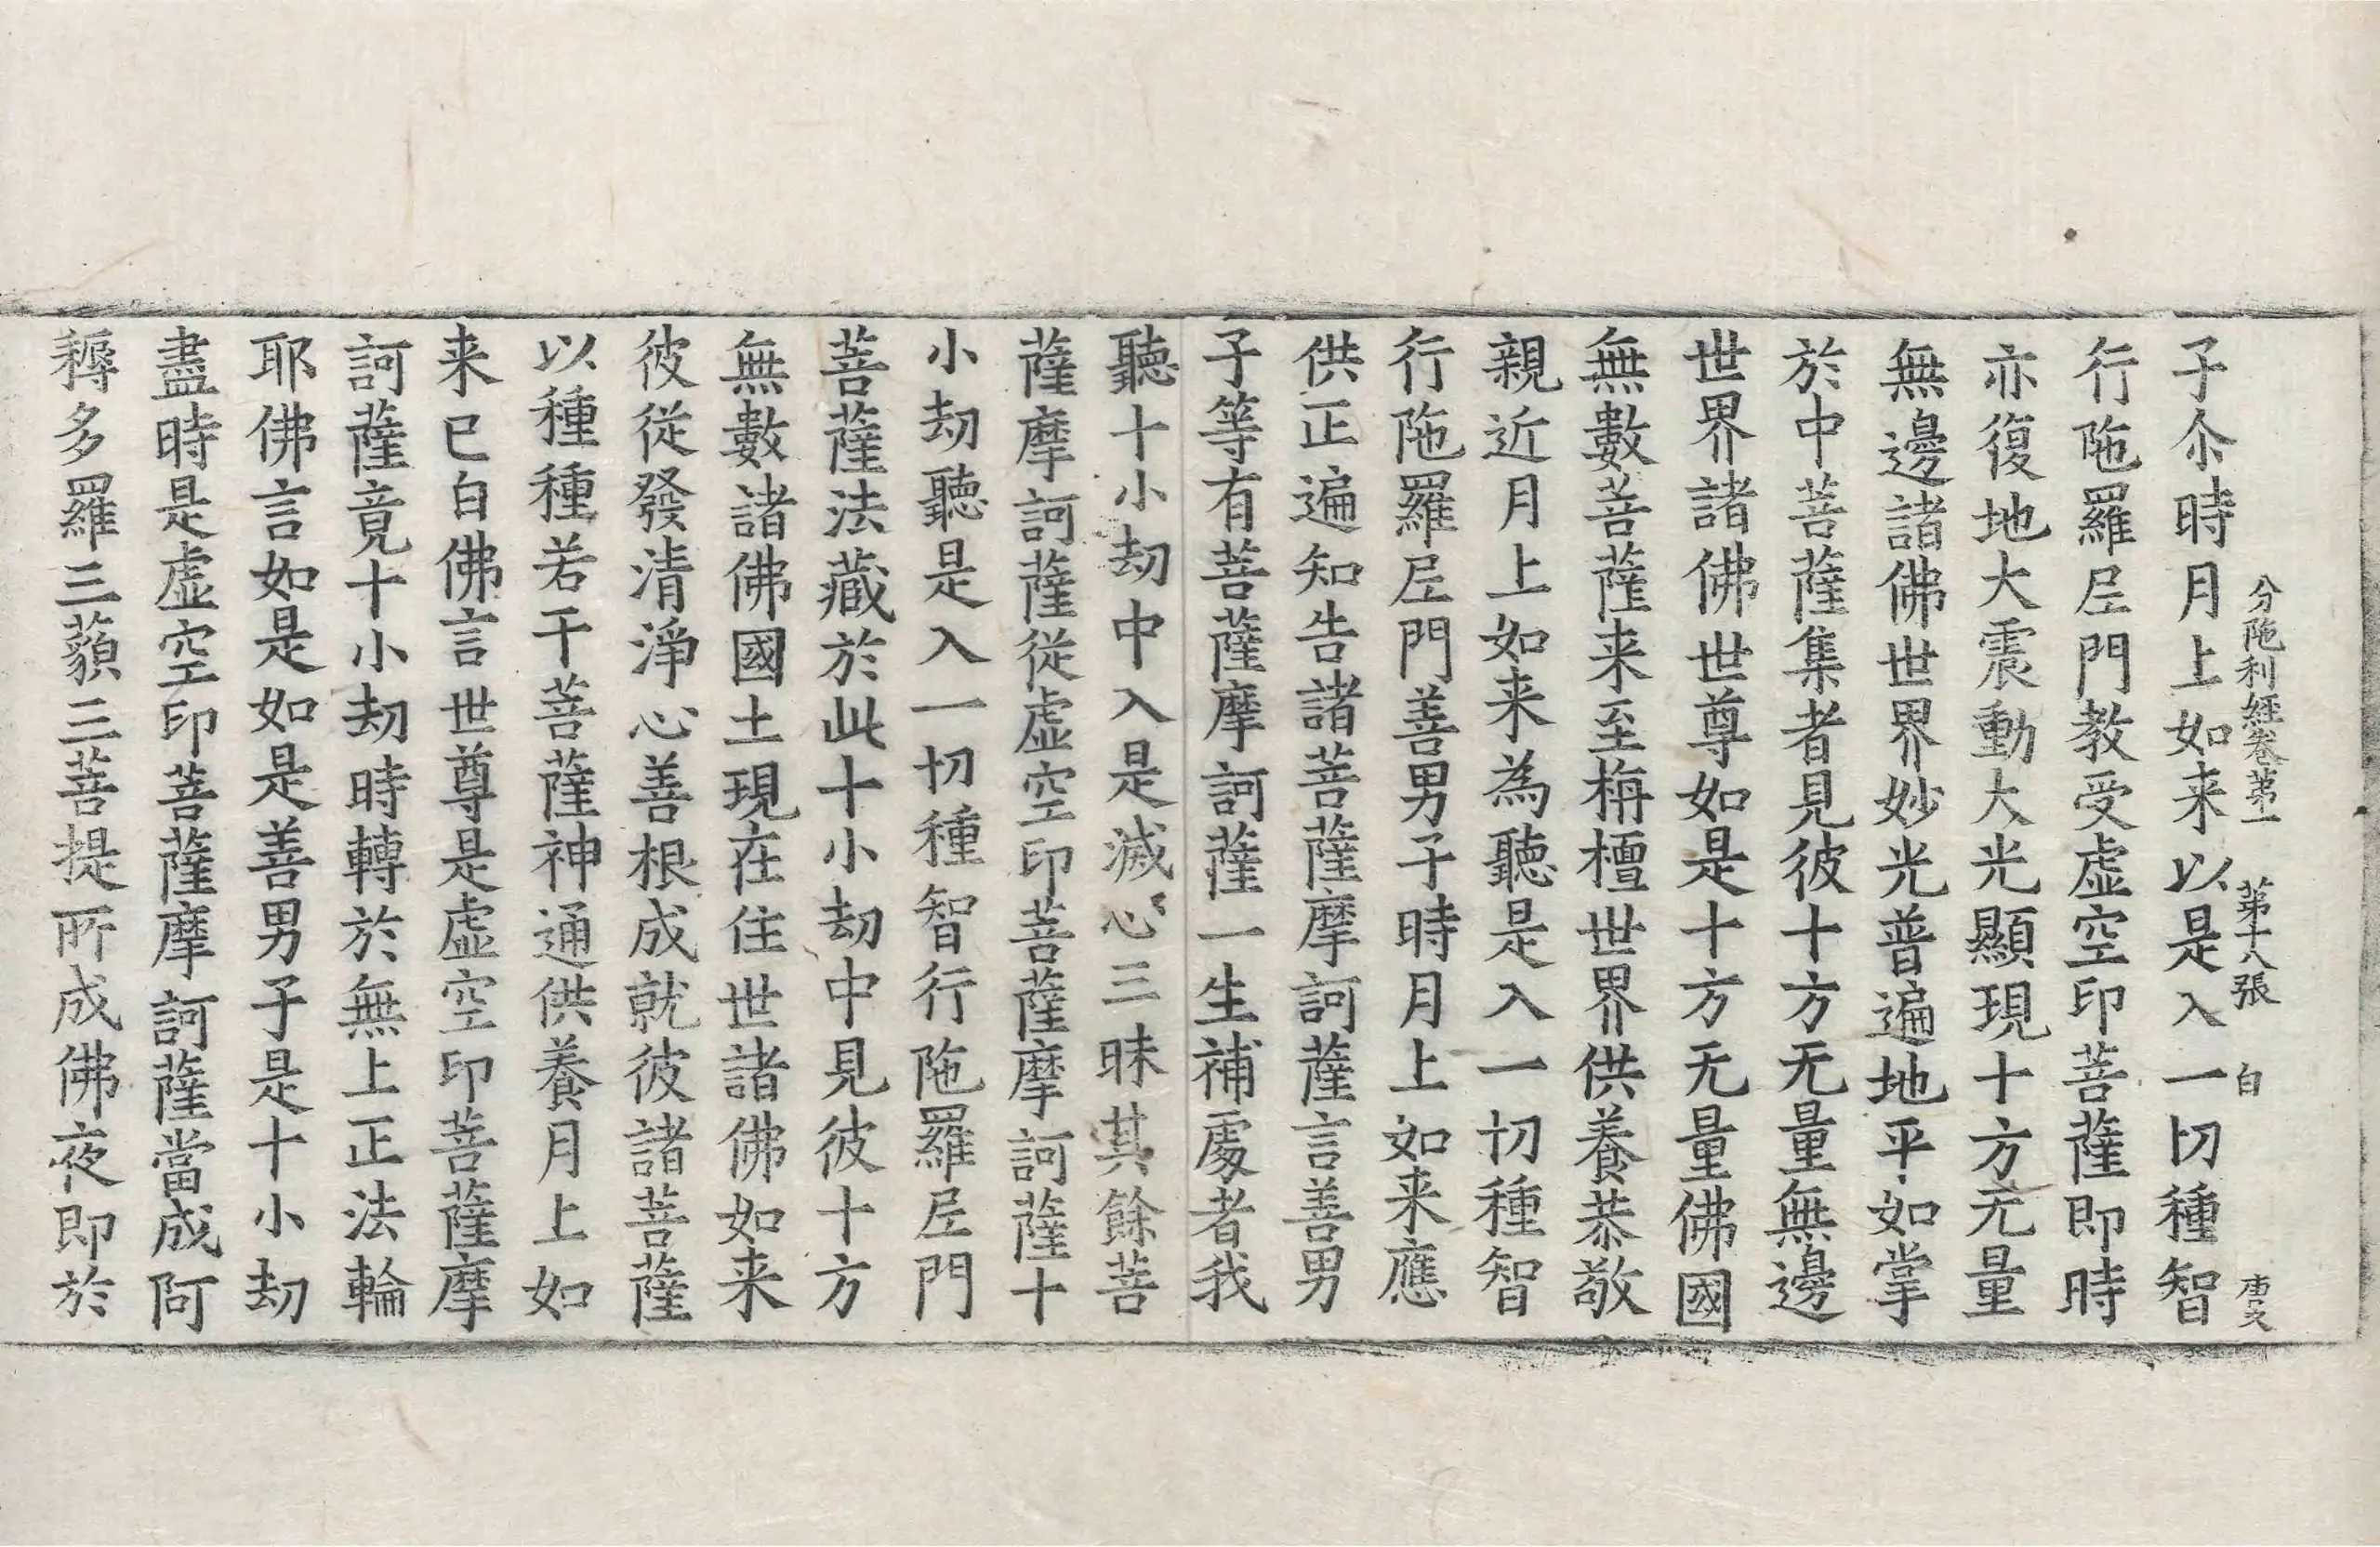 分陁利経卷苐一　苐十八張　白　唐文
子尒時月上如来以是入一切種智
行陁羅𡰱門教受虚空印菩薩即時
亦復地大震動大光顯現十方无量
無邊諸佛世界妙光普遍地平如掌
於中菩薩集者見彼十方无量無邊
世界諸佛世尊如是十方无量佛國
無數菩薩来至栴檀世界供養恭敬
親近月上如来為聽是入一切種智
行陁羅𡰱門善男子時月上如来應
供正遍知告諸菩薩摩訶薩言善男
子等有菩薩摩訶薩一生補處者我
聽十小劫中入是滅心三昧其餘菩
薩摩訶薩從虚空印菩薩摩訶薩十
小劫聽是入一切種智行陁羅𡰱門
菩薩法蔵於此十小劫中見彼十方
無數諸佛國土現在住世諸佛如来
彼從發清淨心善根成就彼諸菩薩
以種種若干菩薩神通供養月上如
来已白佛言世尊是虚空印菩薩摩
訶薩竟十小劫時轉於無上正法輪
耶佛言如是如是善男子是十小劫
盡時是虚空印菩薩摩訶薩當成阿
耨多羅三藐三菩提所成佛夜即於